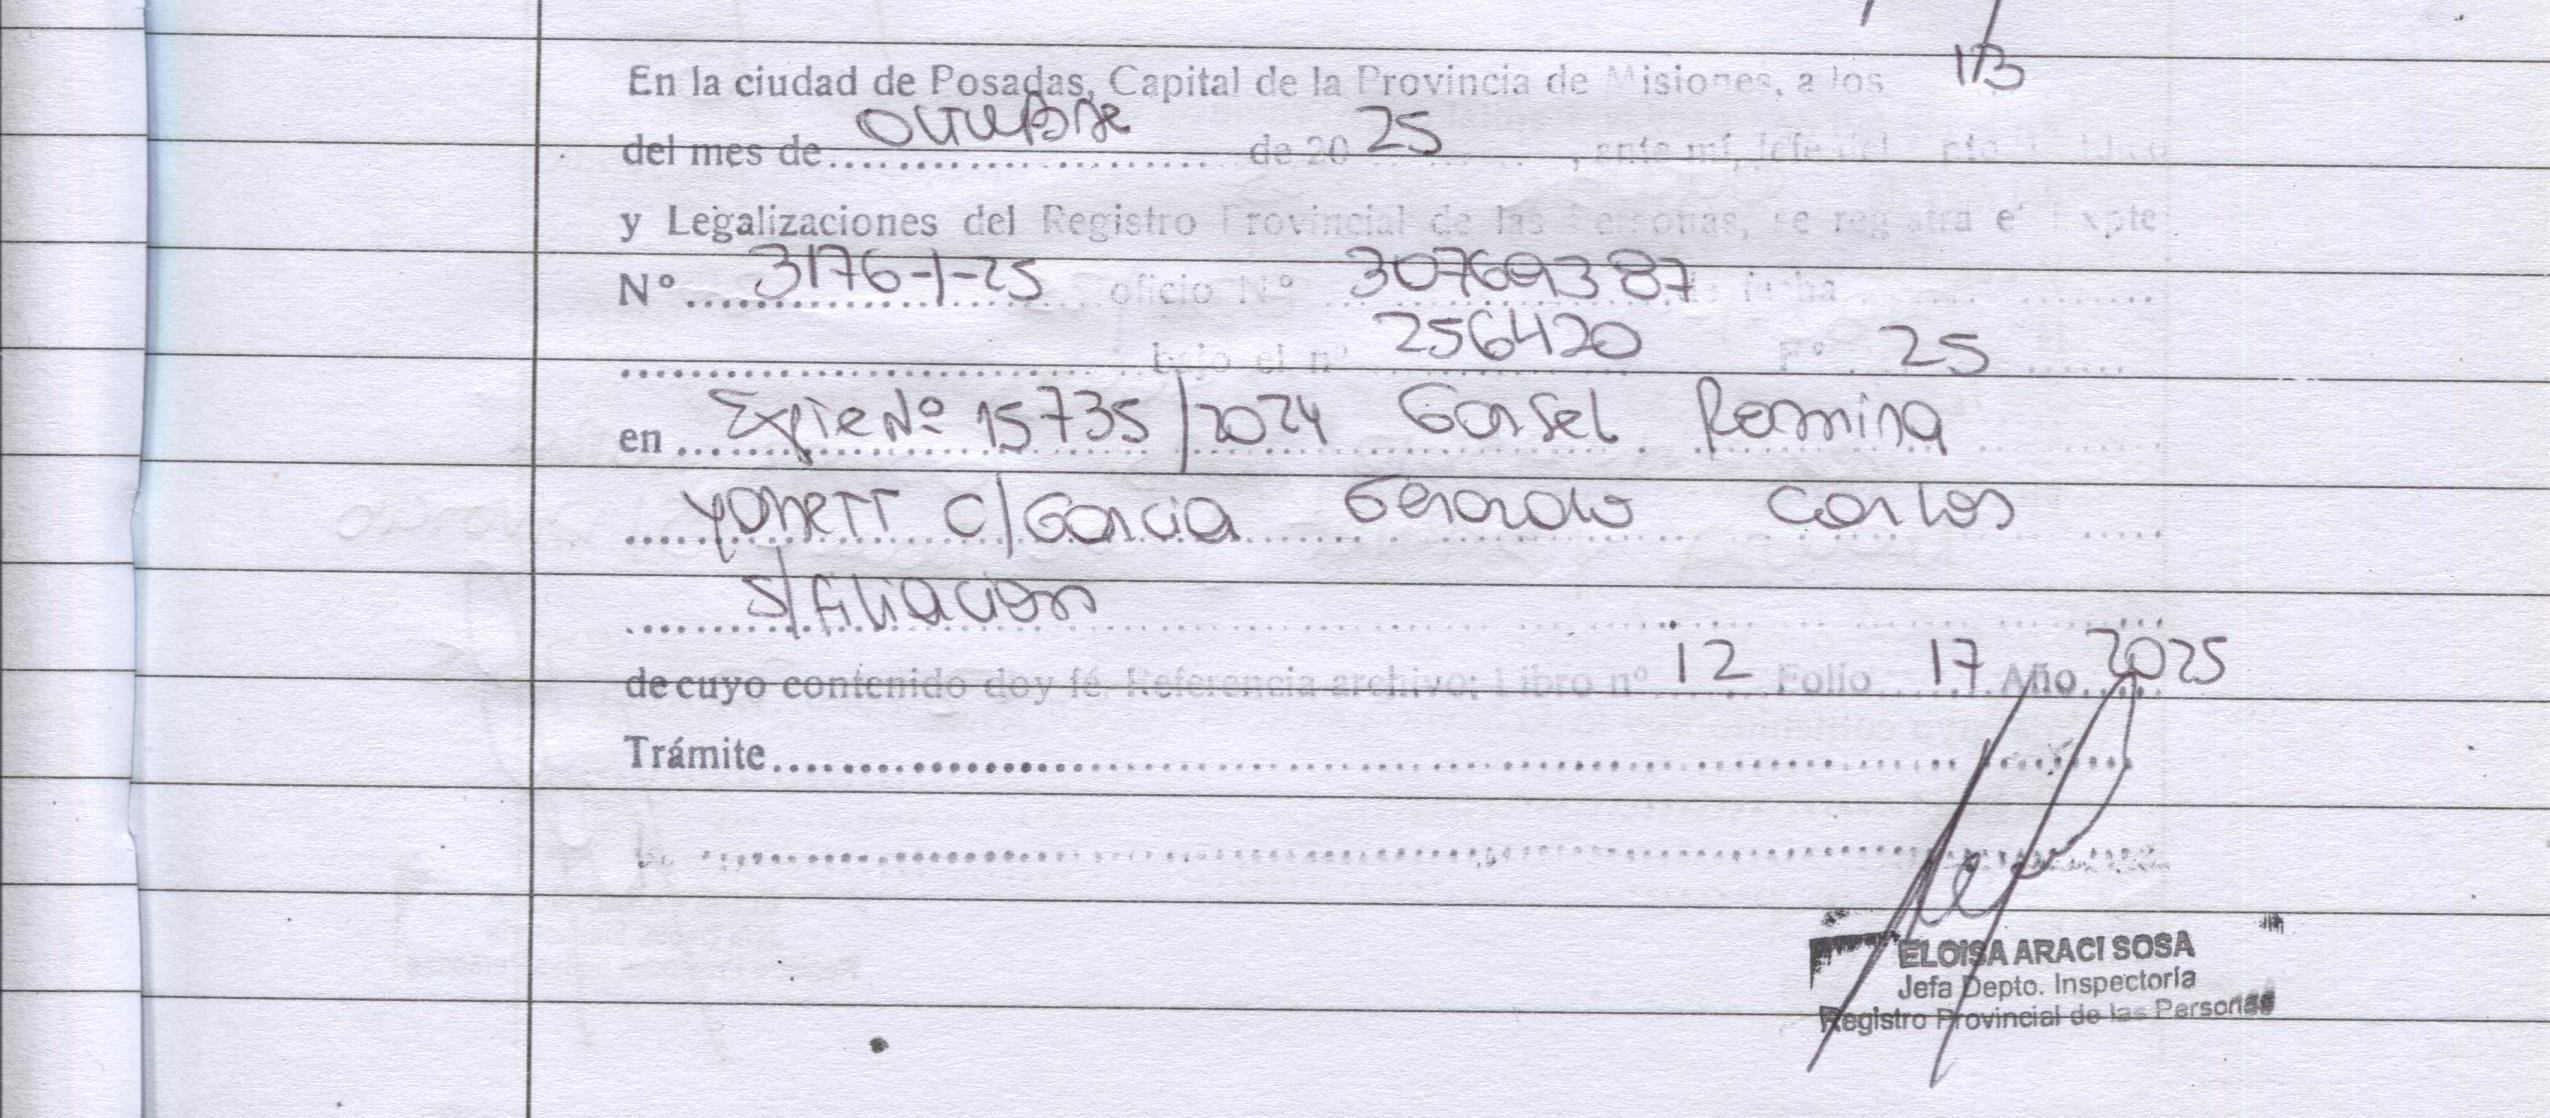 En la ciudad de Posadas, Capital de la Provincia de Misiones, a los 13
del mes de octubre de 2025, ante mí, Jefe del
y Legalizaciones del Registro Provincial de las Personas, se registra el Expte
Nº 3176-1-25 oficio Nº 307693 87 de fecha
bajo el nº 256420 Fº 25
en Expte Nº 15735/2024 Gonsel Romina
Yanett c/ Garcia Gerardo Carlos
s/ filiacion
de cuyo contenido doy fé. Referencia archivo: Libro nº 12 Folio 17 Año 2025
Trámite
ELOISA ARACI SOSA
Jefa Depto. Inspectoría
Registro Provincial de las Personas